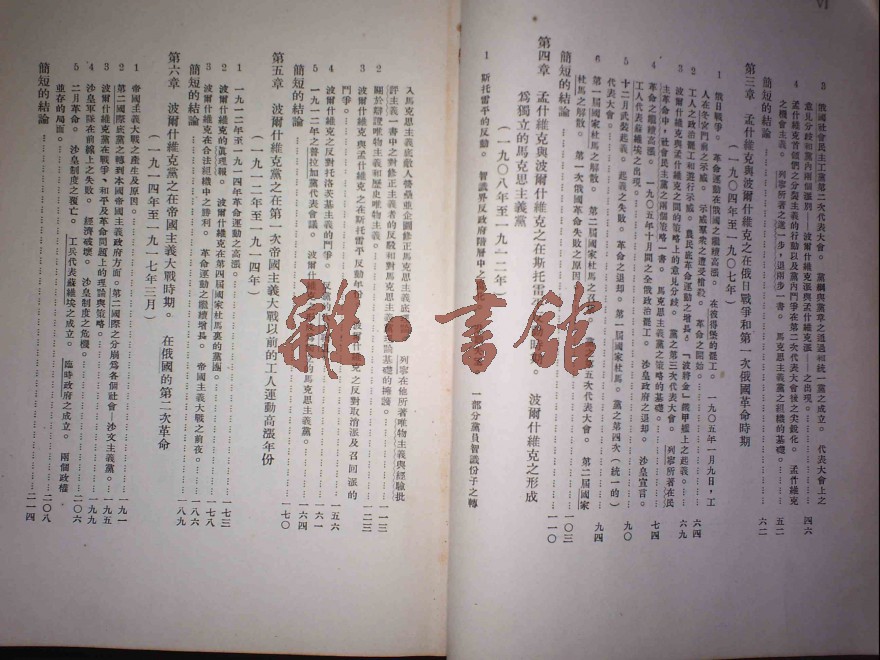 VI
3 俄國社會民主工黨第二次代表大會。 黨綱與黨章之通過和統一黨之成立。 代表大會上之
意見分歧和黨內兩個派別——波爾什維克派與孟什維克派——之出現。 四六
4 孟什維克首領們之分裂主義的行動以及黨內鬥爭在第二次代表大會後之尖銳化。 孟什維克
之機會主義。 列寧所著進一步，退兩步一書。 馬克思主義黨之組織的基礎。 五二
簡短的結論 六二
第三章 孟什維克與波爾什維克之在俄日戰爭和第一次俄國革命時期
（一九〇四年至一九〇七年）
1 俄日戰爭。 革命運動在俄國之繼續高漲。 在彼得堡的罷工。 一九〇五年一月九日，工
人在冬宮門前之示威。 示威羣衆之遭受槍殺。 革命之開始。 六四
2 工人之政治罷工和遊行示威。 農民底革命運動之增長。 「波將金」鐵甲艦上之起義。 六九
3 波爾什維克與孟什維克之間的策略上的意見分歧。 黨之第三次代表大會。 列寧所著在民
主革命中，社會民主黨之兩個策略一書。 馬克思主義黨之策略的基礎。 七四
4 革命之繼續高漲。 一九〇五年十月間之全俄政治罷工。 沙皇政府之退却。 沙皇宣言。
工人代表蘇維埃之出現。
5 十二月武裝起義。 起義之失敗。 革命之退却。 第一屆國家杜馬。 黨之第四次（統一的）
代表大會。 九〇
6 第一屆國家杜馬之解散。 第二屆國家杜馬之召集。 黨之第五次代表大會。 第二屆國家
杜馬之解散。 第一次俄國革命失敗之原因 九四
簡短的結論 一〇三
第四章 孟什維克與波爾什維克之在斯托雷平反動時期。 波爾什維克之形成
爲獨立的馬克思主義黨
（一九〇八年至一九一二年） 一一〇
1 斯托雷平的反動。 智識界反政府階層中之 一部分黨員智識份子之轉
入馬克思主義底敵人營壘並企圖修正馬克思主義底 列寧在他所著唯物主義與經驗批
評主義一書中之對修正主義者的反駁和對馬克思主義 理論基礎的擁護。
2 關於辯證唯物主義和歷史唯物主義。 一一三
3 波爾什維克與孟什維克之在斯托雷平反動年份 波爾什維克之反對取消派及召回派的
鬥爭。 一二三
4 波爾什維克之反對托洛茨基主義的鬥爭。 反黨的 一五六
5 一九一二年之普拉加黨代表會議。 波爾什 的馬克思主義黨。 一六一
簡短的結論 一六四
第五章 波爾什維克黨之在第一次帝國主義大戰以前的工人運動高漲年份
（一九一二年至一九一四年） 一七〇
1 一九一二年至一九一四年革命運動之高漲。
2 波爾什維克的眞理報。 波爾什維克在第四屆國家杜馬裏的黨團。 一七三
3 波爾什維克在合法組織中之勝利。 革命運動之繼續增長。 帝國主義大戰之前夜。 一七八
簡短的結論 一八六
第六章 波爾什維克黨之在帝國主義大戰時期。 在俄國的第二次革命
（一九一四年至一九一七年三月） 一八九
1 帝國主義大戰之產生及原因。
2 第二國際底黨之轉到本國帝國主義政府方面。第二國際之分崩爲各個社會——沙文主義黨。 一九一
3 波爾什維克黨在戰爭、和平及革命問題上的理論與策略。 一九五
4 沙皇軍隊在前線上之失敗。 經濟破壞。 沙皇制度之危機。 一九九
5 二月革命。 沙皇制度之覆亡。 工兵代表蘇維埃之成立。 臨時政府之成立。 兩個政權
並存的局面。 二〇六
簡短的結論 二〇八
二一四
雜·書館